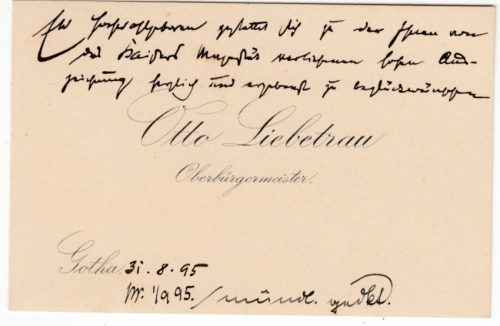 Ew Hochwohlgeboren gestattet sich zu der Ihnen von
des Kaisers Majestät verliehenen hohen Aus-
zeichnung herzlich und ergebenst zu beglückwünschen
Otto Liebetrau
Oberbürgermeister.
Gotha. 31. 8. 95
1/9 95. / mündl. gedkt.